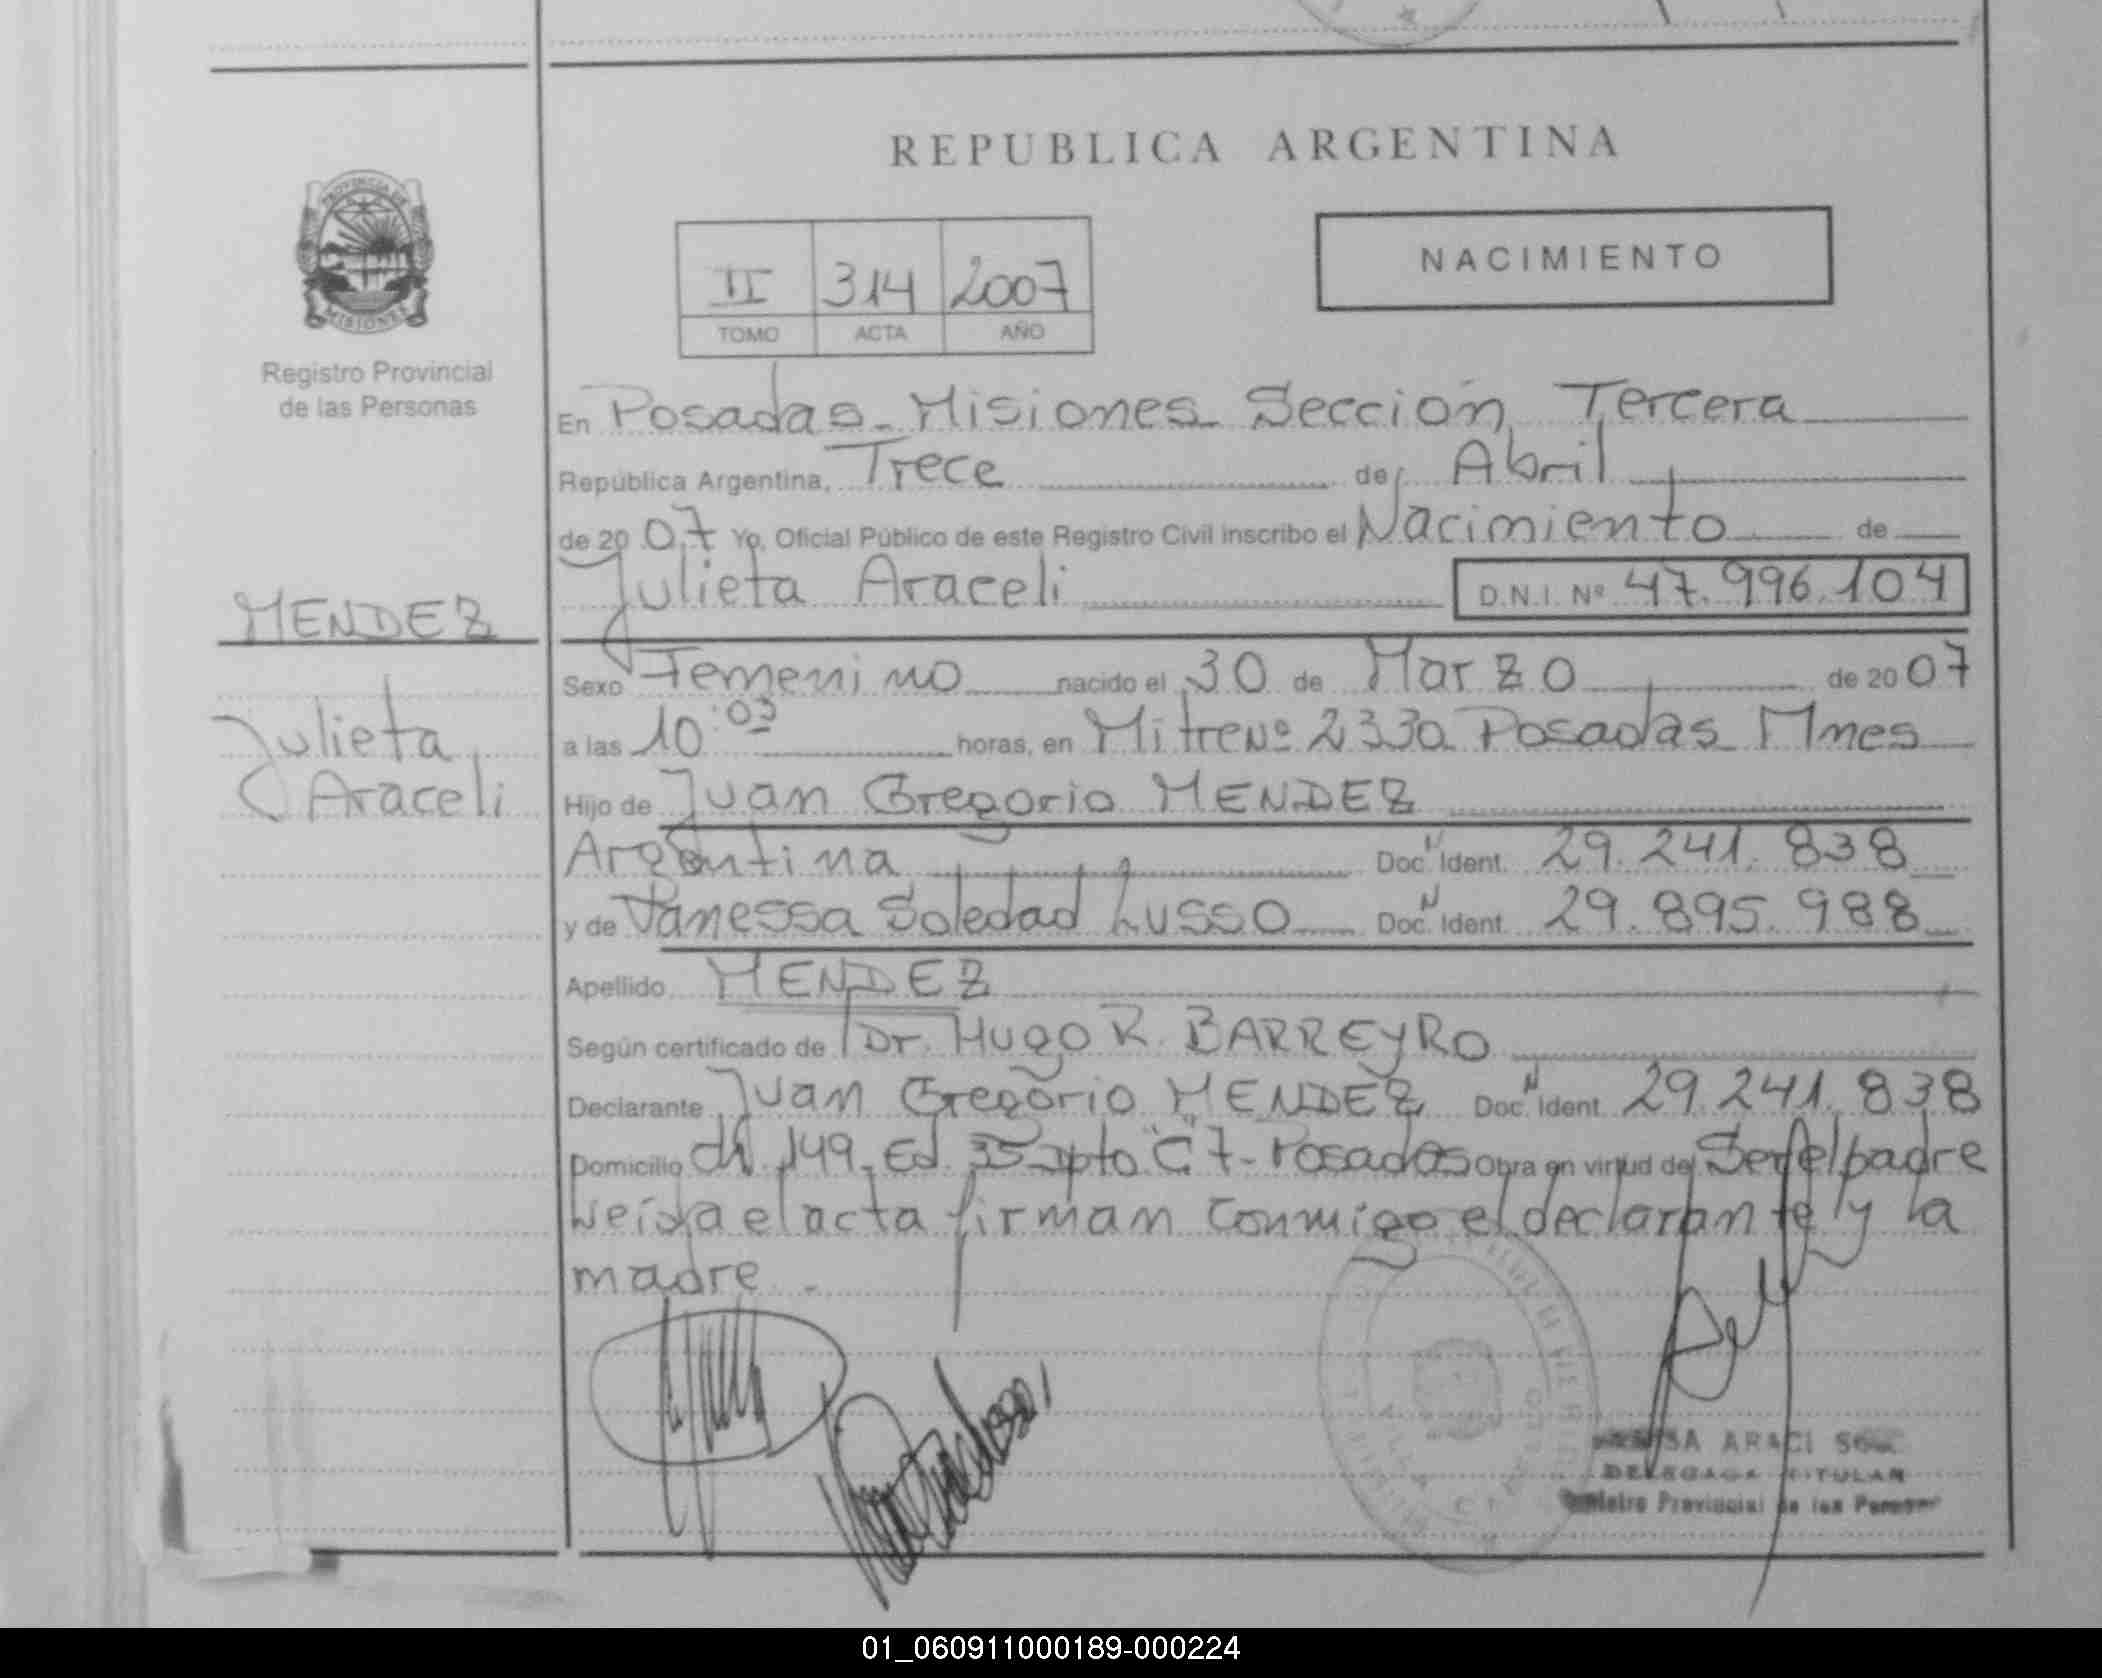 REPUBLICA ARGENTINA
PROVINCIA DE
MISIONES
Registro Provincial
de las Personas
NACIMIENTO
II 314 2007
TOMO ACTA AÑO
En Posadas Misiones Sección Tercera
República Argentina, Trece de Abril
de 2007 Yo, Oficial Público de este Registro Civil inscribo el Nacimiento de
Julieta Araceli D.N.I. Nº 47.996.104
MENDEZ
Julieta
Araceli
Sexo Femenino nacido el 30 de Marzo de 2007
a las 10:03 horas, en Mitre Nº 2330 Posadas Mnes
Hijo de Juan Gregorio MENDEZ
Argentina Doc. N Ident. 29.241.838
y de Vanessa Soledad Lusso Doc. N Ident. 29.895.988
Apellido MENDEZ
Según certificado de Dr. Hugo R. BARREYRO
Declarante Juan Gregorio MENDEZ Doc. N Ident. 29.241.838
Domicilio ch 149. Ed. 35 Dpto "C" 7 - Posadas Obra en virtud de Ser el padre
Leída el acta firman conmigo el declarante y la
madre.-
ARACI
DELEGADA TITULAR
Registro Provincial de las Personas
01_060911000189-000224